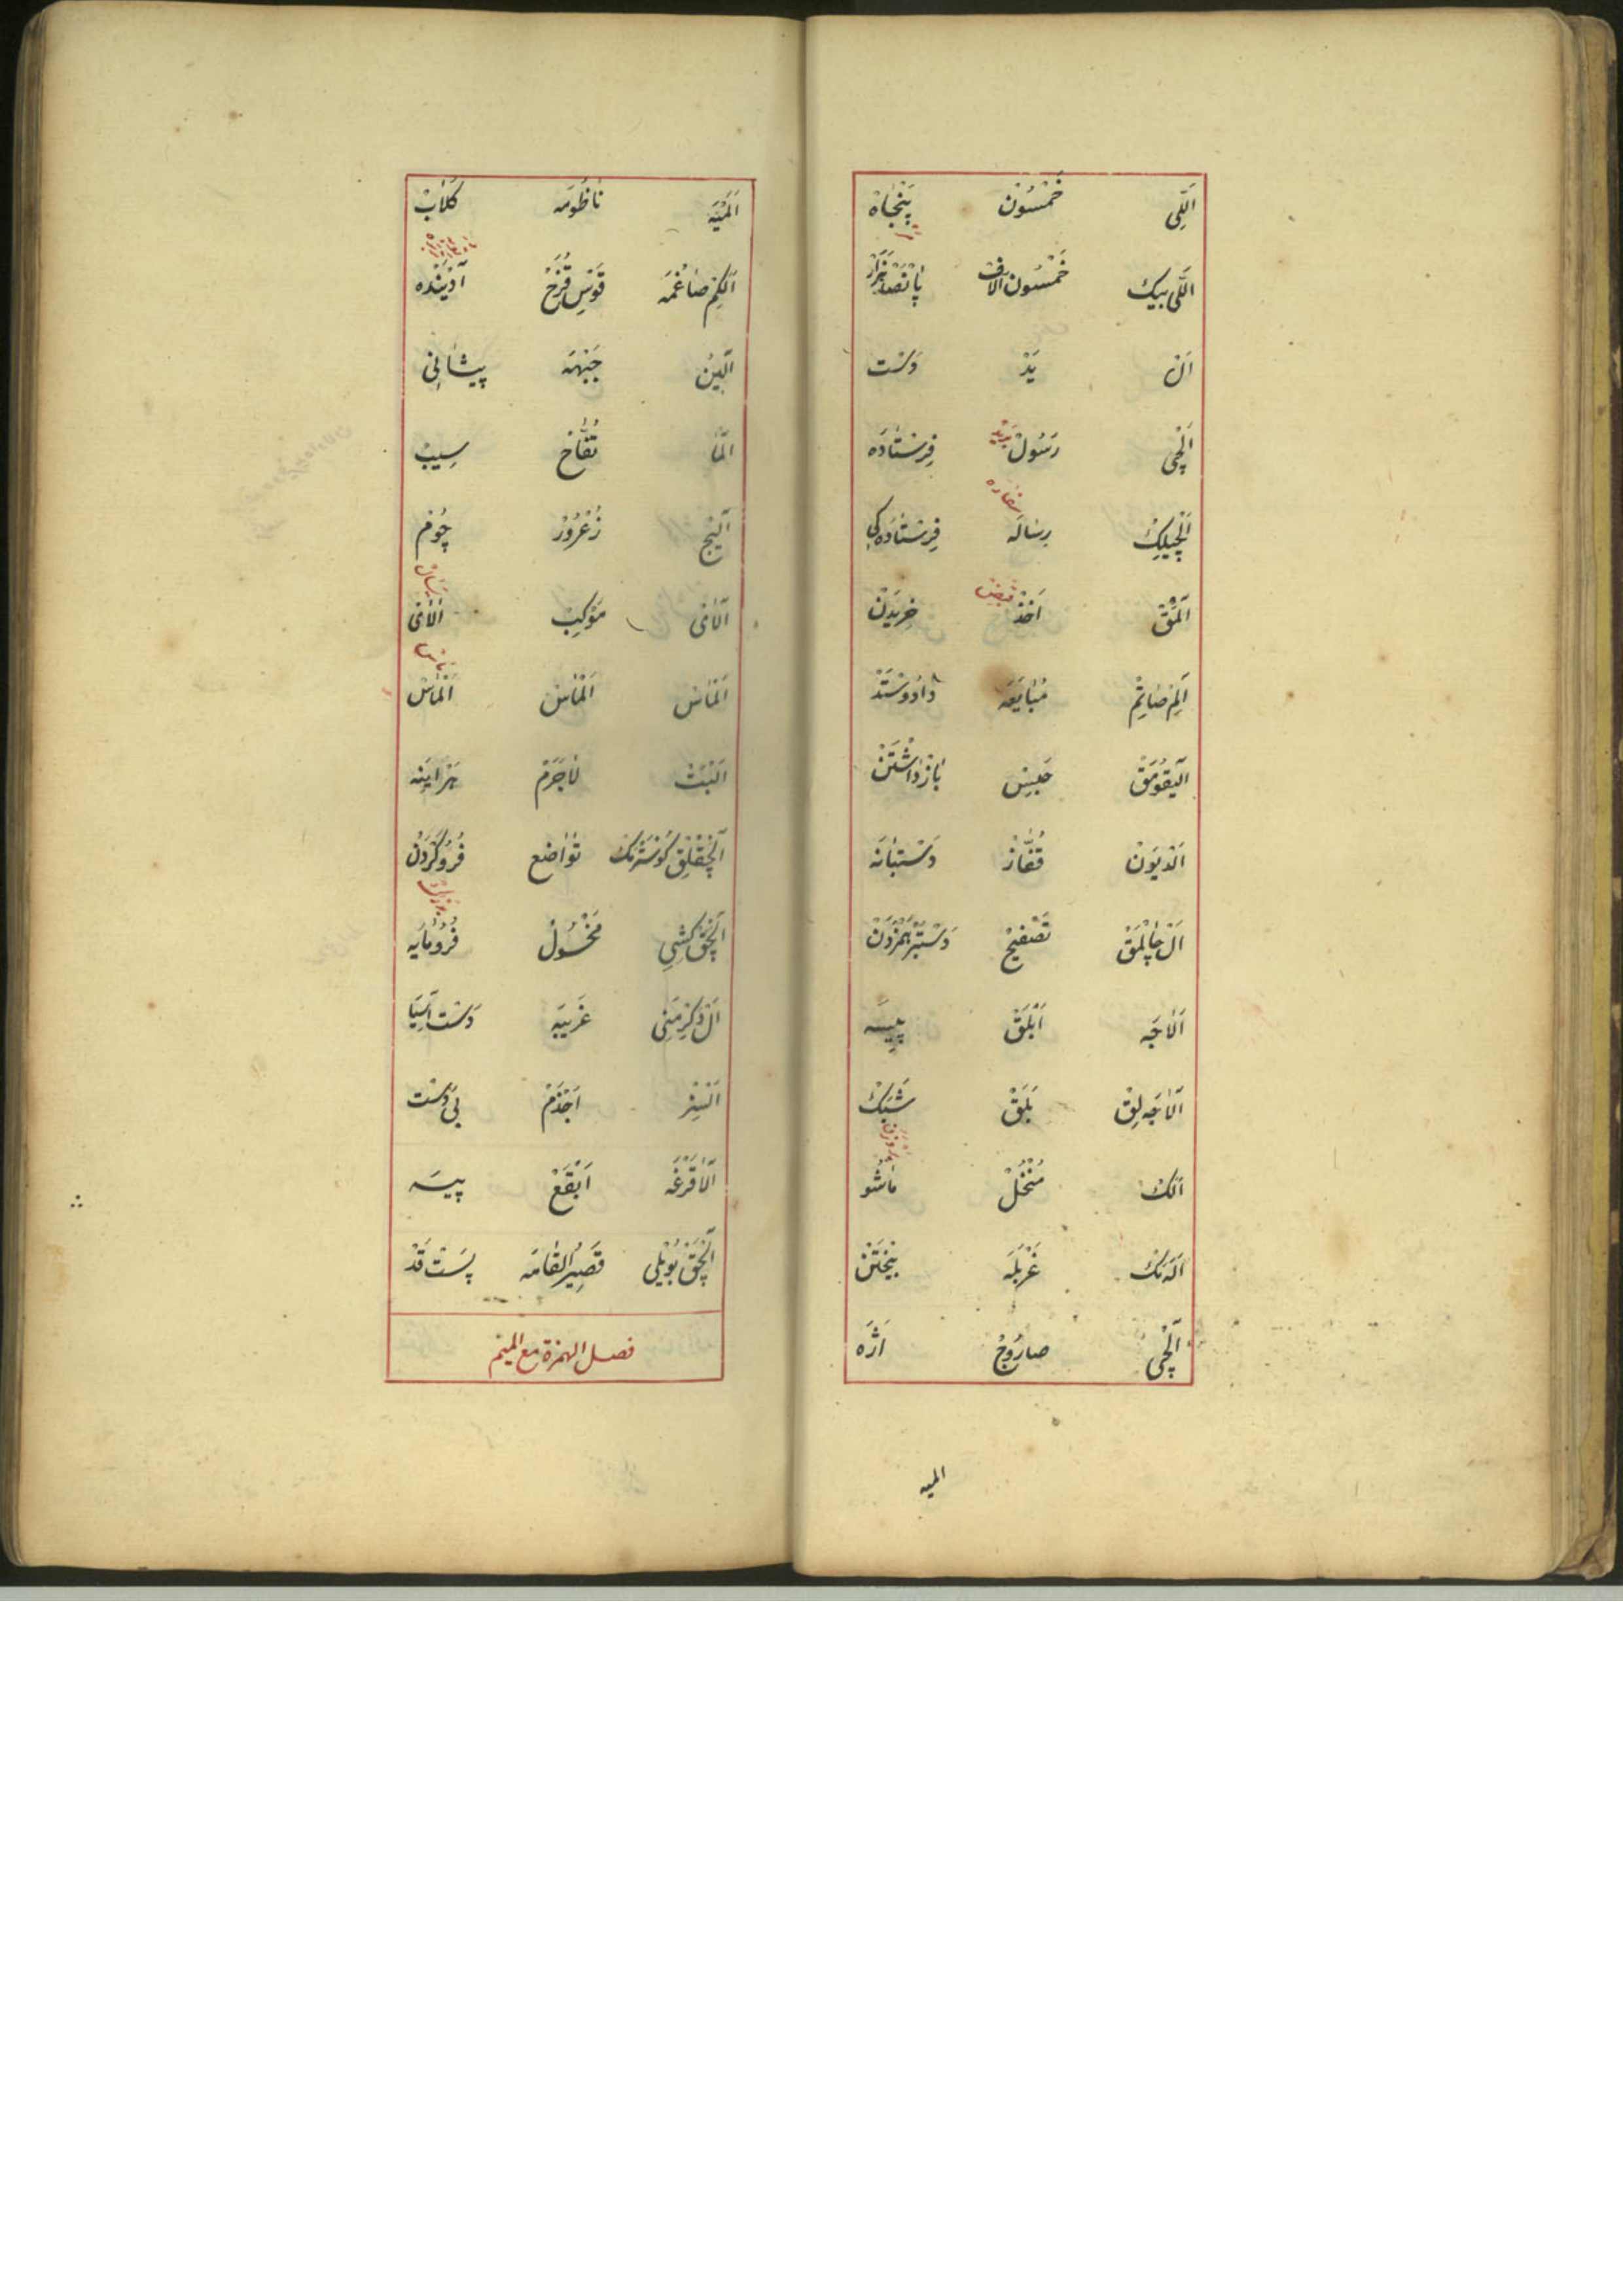 اَللِّی خَمْسُوْن پَنْجَاهْ
اَللِّی بیك خَمْسُون آلَافْ
اَلْ یَدْ دَسْت
اَلْچِی رَسُولْ بَرِیْد فِرِسْتَادَه
اَلْچِیلِكْ رِسَالَه سفاره فِرِسْتَادَه كِی
اَلْمَقْ اَخْذْ قبض خَرِیدَنْ
اَلِمْ صَاتِمْ مُبَایَعَه دَادْوسْتَدْ
اَلیقُومَقْ حَبْسْ بَازْدَاشْتَنْ
اَلْدِیوَنْ قُفَّازْ دَسْتبَانَه
اَلْ چَاپْلْمَقْ تَصْفِیْحْ
اَلَاجَه اَبْلَقْ پِیسَه
اَلَاجَه لِقْ بَلَقْ
اَلَكْ مُنْخُلْ مَاشُو
اَلَه مَكْ غَرْبَلَه بِیْخْتَنْ
اَلْچِی صارُوجْ اَژَه
المیه
اَلْمِیَه نَاظُومَه كَلَابْ
اَلْكِمْ صَاغْمَه قَوْسِ قُزَحْ آدْیَنْدَه
اَلِینْ جَبْهَه پیشَانِی
اَلْمَا تُفَّاحْ سِیبْ
اَلِیْجْ زُعْرُورْ چُومْ
اَلَایْ مَوْكِبْ اَلَایْ
اَلْمَاسْ اَلْمَاسْ اَلْمَاسْ
اَلْبَتْ لَاجَرَمْ هَرْاینَه
اَلْچَقْلِقْ كُوسْتَرْمَكْ تَوَاضُع فُرُوكَرْدَنْ
اَلْچَقْ كِشِی مَخْسُولْ فُرُومَایَه
اَلْ دَكِرْمَنِی غَرِیبَه دَسْت آسِیَا
اَلْسِزْ اَجْذَمْ بِی دَسْت
اَلَاقَرْغَه اَبْقَعْ پیسَه
اَلْچَقْ بُویْلِی قَصِیرُ القَامَه پَسْت قَدْ
فصل الهمزة مع المیم